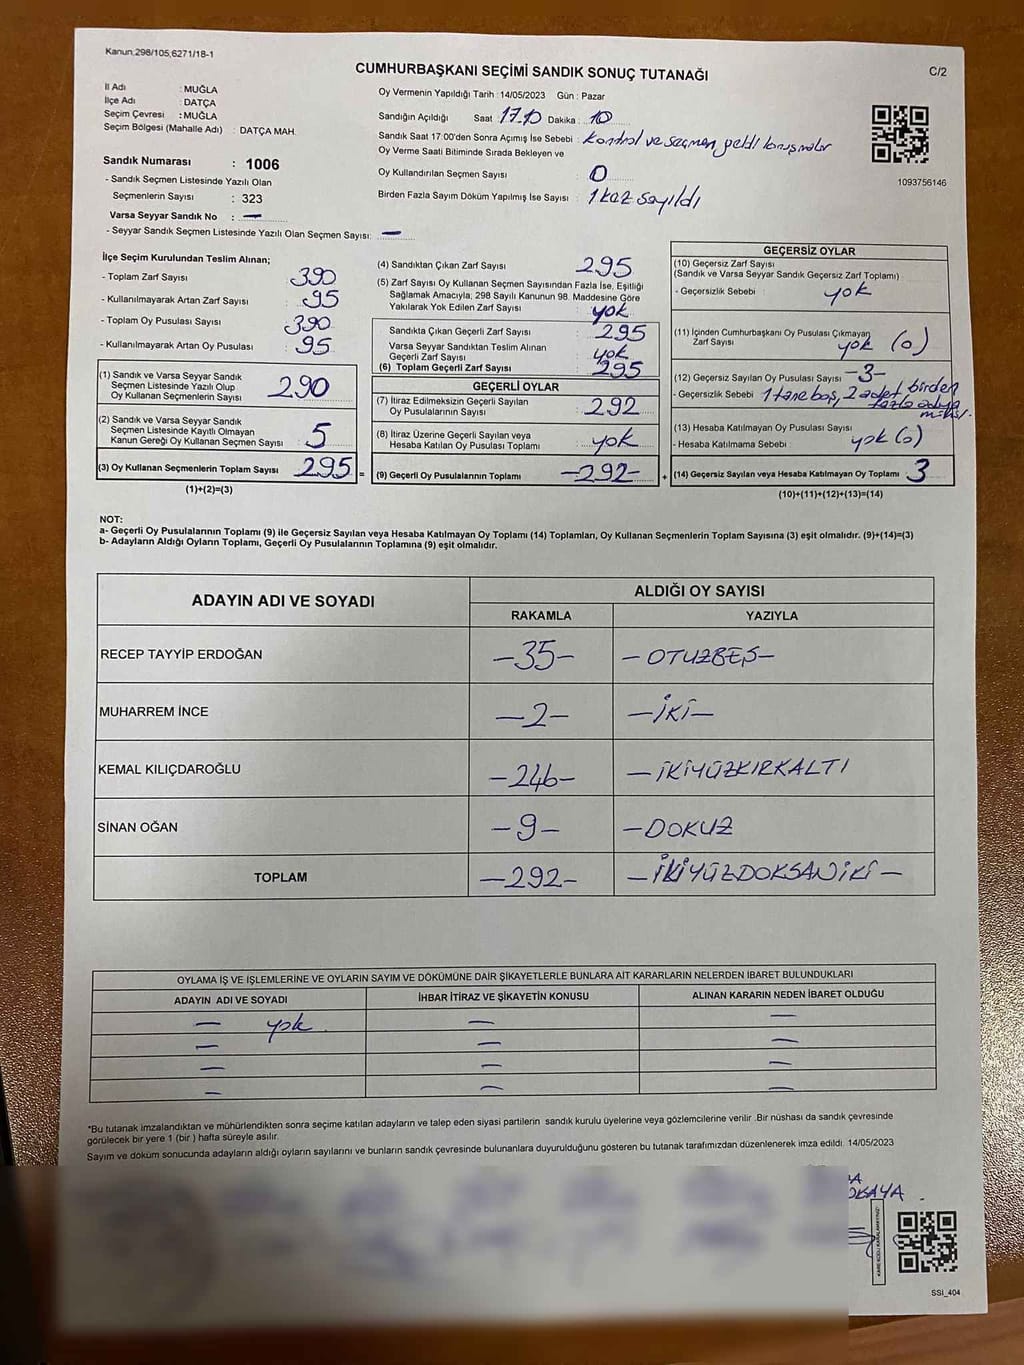 Kanun,298/105,6271/18-1
CUMHURBAŞKANI SEÇİMİ SANDIK SONUÇ TUTANAĞI
C/2
İl Adı : MUĞLA
İlçe Adı : DATÇA
Seçim Çevresi : MUĞLA
Seçim Bölgesi (Mahalle Adı) : DATÇA MAH.
Sandık Numarası : 1006
- Sandık Seçmen Listesinde Yazılı Olan
Seçmenlerin Sayısı : 323
Varsa Seyyar Sandık No : —
- Seyyar Sandık Seçmen Listesinde Yazılı Olan Seçmen Sayısı: —
Oy Vermenin Yapıldığı Tarih : 14/05/2023 Gün : Pazar
Sandığın Açıldığı Saat 17.10 Dakika : 10
Sandık Saat 17:00'den Sonra Açımış İse Sebebi : Kontrol ve seçmen geldi
Oy Verme Saati Bitiminde Sırada Bekleyen ve
Oy Kullandırılan Seçmen Sayısı : 0
Birden Fazla Sayım Döküm Yapılmış İse Sayısı : 1 kez sayıldı
1093756146
İlçe Seçim Kurulundan Teslim Alınan;
- Toplam Zarf Sayısı : 390
- Kullanılmayarak Artan Zarf Sayısı : 95
- Toplam Oy Pusulası Sayısı : 390
- Kullanılmayarak Artan Oy Pusulası : 95
(1) Sandık ve Varsa Seyyar Sandık
Seçmen Listesinde Yazılı Olup
Oy Kullanan Seçmenlerin Sayısı : 290
(2) Sandık ve Varsa Seyyar Sandık
Seçmen Listesinde Kayıtlı Olmayan
Kanun Gereği Oy Kullanan Seçmen Sayısı : 5
(3) Oy Kullanan Seçmenlerin Toplam Sayısı 295 =
(1)+(2)=(3)
(4) Sandıktan Çıkan Zarf Sayısı 295
(5) Zarf Sayısı Oy Kullanan Seçmen Sayısından Fazla İse, Eşitliği
Sağlamak Amacıyla; 298 Sayılı Kanunun 98. Maddesine Göre
Yakılarak Yok Edilen Zarf Sayısı : yok
Sandıkta Çıkan Geçerli Zarf Sayısı : 295
Varsa Seyyar Sandıktan Teslim Alınan
Geçerli Zarf Sayısı : yok
(6) Toplam Geçerli Zarf Sayısı : 295
GEÇERLİ OYLAR
(7) İtiraz Edilmeksizin Geçerli Sayılan
Oy Pusulalarının Sayısı : 292
(8) İtiraz Üzerine Geçerli Sayılan veya
Hesaba Katılan Oy Pusulası Toplamı : yok
(9) Geçerli Oy Pusulalarının Toplamı -292- +
GEÇERSİZ OYLAR
(10) Geçersiz Zarf Sayısı
(Sandık ve Varsa Seyyar Sandık Geçersiz Zarf Toplamı)
- Geçersizlik Sebebi : yok
(11) İçinden Cumhurbaşkanı Oy Pusulası Çıkmayan
Zarf Sayısı : yok (0)
(12) Geçersiz Sayılan Oy Pusulası Sayısı -3-
- Geçersizlik Sebebi : 1 tane boş, 2 adet birden
fazla adaya
(13) Hesaba Katılmayan Oy Pusulası Sayısı
- Hesaba Katılmama Sebebi : yok (0)
(14) Geçersiz Sayılan veya Hesaba Katılmayan Oy Toplamı : 3
(10)+(11)+(12)+(13)=(14)
NOT:
a- Geçerli Oy Pusulalarının Toplamı (9) ile Geçersiz Sayılan veya Hesaba Katılmayan Oy Toplamı (14) Toplamları, Oy Kullanan Seçmenlerin Toplam Sayısına (3) eşit olmalıdır. (9)+(14)=(3)
b- Adayların Aldığı Oyların Toplamı, Geçerli Oy Pusulalarının Toplamına (9) eşit olmalıdır.
ADAYIN ADI VE SOYADI ALDIĞI OY SAYISI
RAKAMLA YAZIYLA
RECEP TAYYİP ERDOĞAN -35- -OTUZBEŞ-
MUHARREM İNCE -2- -İKİ-
KEMAL KILIÇDAROĞLU -246- -İKİYÜZKIRKALTI
SİNAN OĞAN -9- -DOKUZ
TOPLAM -292- -İKİYÜZDOKSANİKİ-
OYLAMA İŞ VE İŞLEMLERİNE VE OYLARIN SAYIM VE DÖKÜMÜNE DAİR ŞİKAYETLERLE BUNLARA AİT KARARLARIN NELERDEN İBARET BULUNDUKLARI
ADAYIN ADI VE SOYADI İHBAR İTİRAZ VE ŞİKAYETİN KONUSU ALINAN KARARIN NEDEN İBARET OLDUĞU
— yok — —
— — —
— — —
— — —
*Bu tutanak imzalandıktan ve mühürlendikten sonra seçime katılan adayların ve talep eden siyasi partilerin sandık kurulu üyelerine veya gözlemcilerine verilir .Bir nüshası da sandık çevresinde
görülecek bir yere 1 (bir ) hafta süreyle asılır.
Sayım ve döküm sonucunda adayların aldığı oyların sayılarını ve bunların sandık çevresinde bulunanlara duyurulduğunu gösteren bu tutanak tarafımızdan düzenlenerek imza edildi. 14/05/2023
KAREKODU KARALAMAYINIZ!
SSI_404